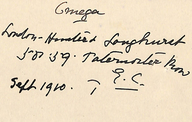 Omega
London – Hunter & Longhurst
58 & 59. Paternoster Row
E. C.
Sept. 1910.